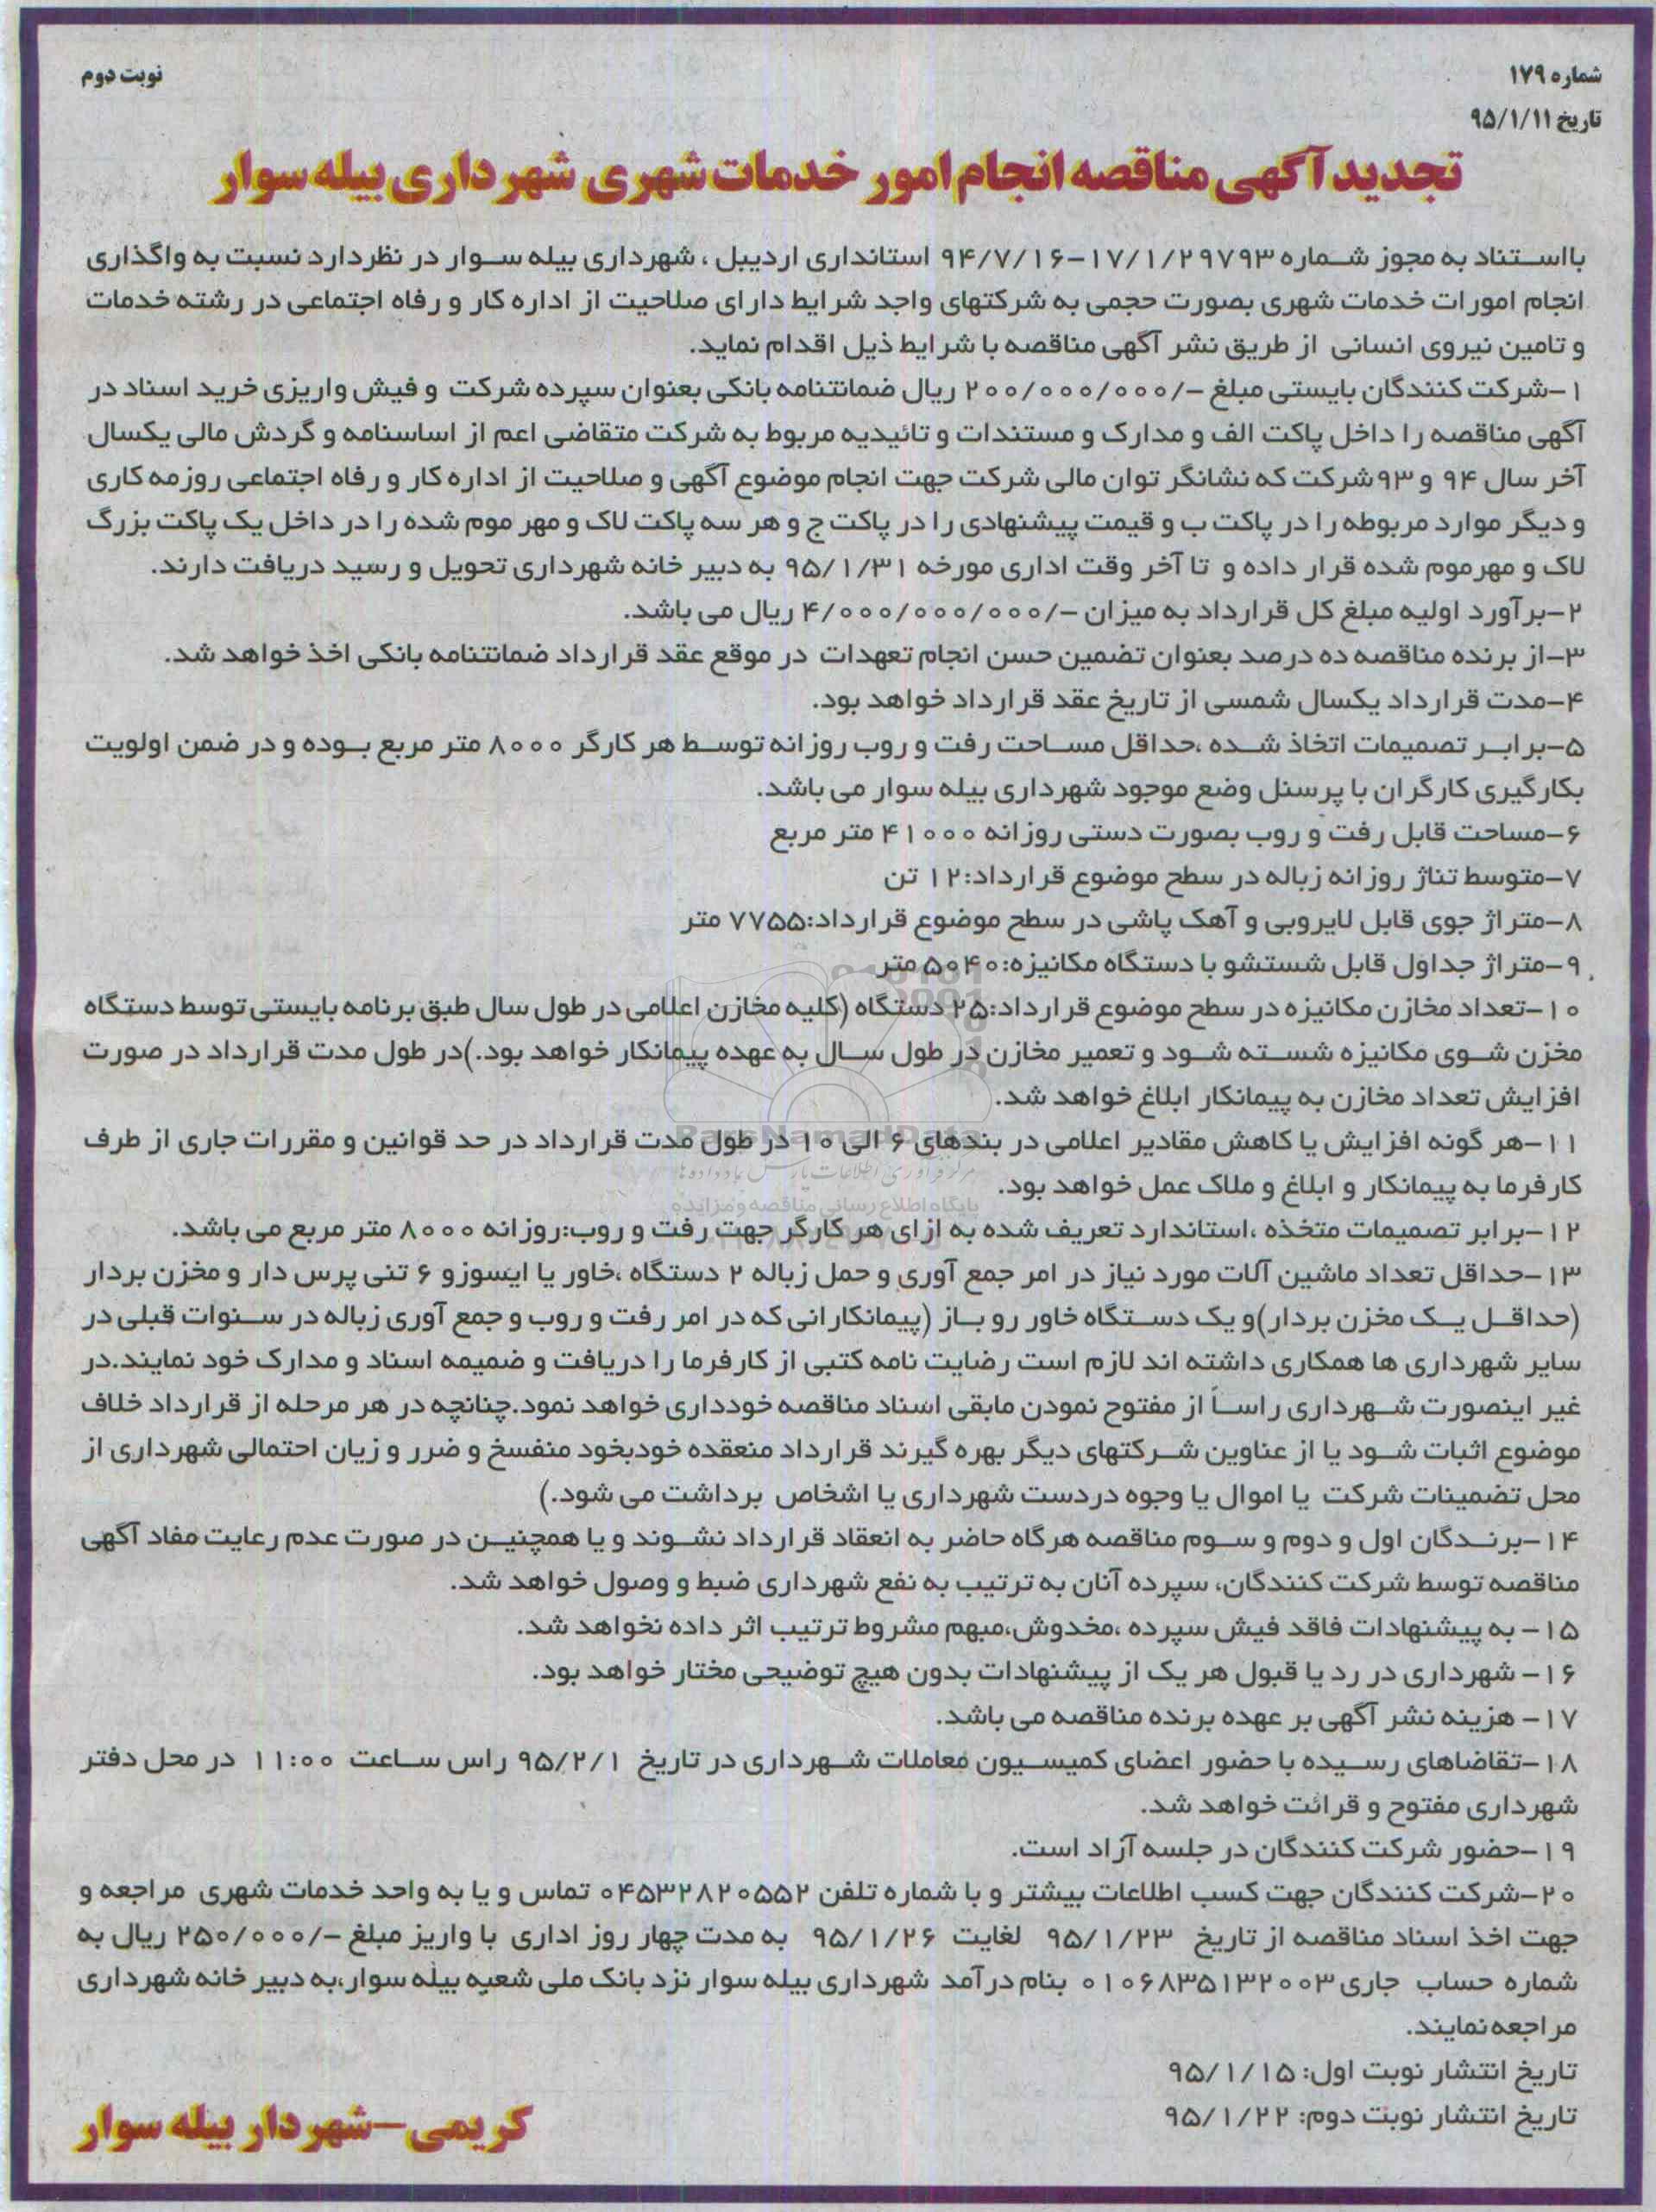 شماره ۱۷۹
نوبت دوم
تاریخ ۹۵/۱/۱۱
تجدید آگهی مناقصه انجام امور خدمات شهری شهرداری بیله سوار
بااستناد به مجوز شماره ۱۷/۱/۲۹۷۹۳-۹۴/۷/۱۶ استانداری اردبیل ، شهرداری بیله سوار در نظردارد نسبت به واگذاری
انجام امورات خدمات شهری بصورت حجمی به شرکتهای واجد شرایط دارای صلاحیت از اداره کار و رفاه اجتماعی در رشته خدمات
و تامین نیروی انسانی از طریق نشر آگهی مناقصه با شرایط ذیل اقدام نماید.
۱-شرکت کنندگان بایستی مبلغ -/۲۰۰/۰۰۰/۰۰۰ ریال ضمانتنامه بانکی بعنوان سپرده شرکت و فیش واریزی خرید اسناد در
آگهی مناقصه را داخل پاکت الف و مدارک و مستندات و تائیدیه مربوط به شرکت متقاضی اعم از اساسنامه و گردش مالی یکسال
آخر سال ۹۴ و ۹۳شرکت که نشانگر توان مالی شرکت جهت انجام موضوع آگهی و صلاحیت از اداره کار و رفاه اجتماعی روزمه کاری
و دیگر موارد مربوطه را در پاکت ب و قیمت پیشنهادی را در پاکت ج و هر سه پاکت لاک و مهر موم شده را در داخل یک پاکت بزرگ
لاک و مهرموم شده قرار داده و تا آخر وقت اداری مورخه ۹۵/۱/۳۱ به دبیر خانه شهرداری تحویل و رسید دریافت دارند.
۲-برآورد اولیه مبلغ کل قرارداد به میزان -/۴/۰۰۰/۰۰۰/۰۰۰ ریال می باشد.
۳-از برنده مناقصه ده درصد بعنوان تضمین حسن انجام تعهدات در موقع عقد قرارداد ضمانتنامه بانکی اخذ خواهد شد.
۴-مدت قرارداد یکسال شمسی از تاریخ عقد قرارداد خواهد بود.
۵-برابر تصمیمات اتخاذ شده ،حداقل مساحت رفت و روب روزانه توسط هر کارگر ۸۰۰۰ متر مربع بوده و در ضمن اولویت
بکارگیری کارگران با پرسنل وضع موجود شهرداری بیله سوار می باشد.
۶-مساحت قابل رفت و روب بصورت دستی روزانه ۴۱۰۰۰ متر مربع
۷-متوسط تناژ روزانه زباله در سطح موضوع قرارداد:۱۲ تن
۸-متراژ جوی قابل لایروبی و آهک پاشی در سطح موضوع قرارداد:۷۷۵۵ متر
۹-متراژ جداول قابل شستشو با دستگاه مکانیزه:۵۰۴۰ متر
۱۰-تعداد مخازن مکانیزه در سطح موضوع قرارداد:۲۵ دستگاه (کلیه مخازن اعلامی در طول سال طبق برنامه بایستی توسط دستگاه
مخزن شوی مکانیزه شسته شود و تعمیر مخازن در طول سال به عهده پیمانکار خواهد بود.)در طول مدت قرارداد در صورت
افزایش تعداد مخازن به پیمانکار ابلاغ خواهد شد.
ParsNamadData
۱۱-هر گونه افزایش یا کاهش مقادیر اعلامی در بندهای ۶ الی ۱۰ در طول مدت قرارداد در حد قوانین و مقررات جاری از طرف
کارفرما به پیمانکار و ابلاغ و ملاک عمل خواهد بود.
پایگاه اطلاع رسانی مناقصه و مزایده
۱۲-برابر تصمیمات متخذه ،استاندارد تعریف شده به ازای هر کارگر جهت رفت و روب:روزانه ۸۰۰۰ متر مربع می باشد.
۱۳-حداقل تعداد ماشین آلات مورد نیاز در امر جمع آوری و حمل زباله ۲ دستگاه ،خاور یا ایسوزو ۶ تنی پرس دار و مخزن بردار
(حداقل یک مخزن بردار)و یک دستگاه خاور رو باز (پیمانکارانی که در امر رفت و روب و جمع آوری زباله در سنوات قبلی در
سایر شهرداری ها همکاری داشته اند لازم است رضایت نامه کتبی از کارفرما را دریافت و ضمیمه اسناد و مدارک خود نمایند.در
غیر اینصورت شهرداری راساً از مفتوح نمودن مابقی اسناد مناقصه خودداری خواهد نمود.چنانچه در هر مرحله از قرارداد خلاف
موضوع اثبات شود یا از عناوین شرکتهای دیگر بهره گیرند قرارداد منعقده خودبخود منفسخ و ضرر و زیان احتمالی شهرداری از
محل تضمینات شرکت یا اموال یا وجوه دردست شهرداری یا اشخاص برداشت می شود.)
۱۴-برندگان اول و دوم و سوم مناقصه هرگاه حاضر به انعقاد قرارداد نشوند و یا همچنین در صورت عدم رعایت مفاد آگهی
مناقصه توسط شرکت کنندگان، سپرده آنان به ترتیب به نفع شهرداری ضبط و وصول خواهد شد.
۱۵- به پیشنهادات فاقد فیش سپرده ،مخدوش،مبهم مشروط ترتیب اثر داده نخواهد شد.
۱۶- شهرداری در رد یا قبول هر یک از پیشنهادات بدون هیچ توضیحی مختار خواهد بود.
۱۷- هزینه نشر آگهی بر عهده برنده مناقصه می باشد.
۱۸-تقاضاهای رسیده با حضور اعضای کمیسیون معاملات شهرداری در تاریخ ۹۵/۲/۱ راس ساعت ۱۱:۰۰ در محل دفتر
شهرداری مفتوح و قرائت خواهد شد.
۱۹-حضور شرکت کنندگان در جلسه آزاد است.
۲۰-شرکت کنندگان جهت کسب اطلاعات بیشتر و با شماره تلفن ۰۴۵۳۲۸۲۰۵۵۲ تماس و یا به واحد خدمات شهری مراجعه و
جهت اخذ اسناد مناقصه از تاریخ ۹۵/۱/۲۳ لغایت ۹۵/۱/۲۶ به مدت چهار روز اداری با واریز مبلغ -/۲۵۰/۰۰۰ ریال به
شماره حساب جاری ۰۱۰۶۸۳۵۱۳۲۰۰۳ بنام درآمد شهرداری بیله سوار نزد بانک ملی شعبه بیله سوار،به دبیر خانه شهرداری
مراجعه نمایند.
تاریخ انتشار نوبت اول: ۹۵/۱/۱۵
تاریخ انتشار نوبت دوم: ۹۵/۱/۲۲
کریمی-شهردار بیله سوار